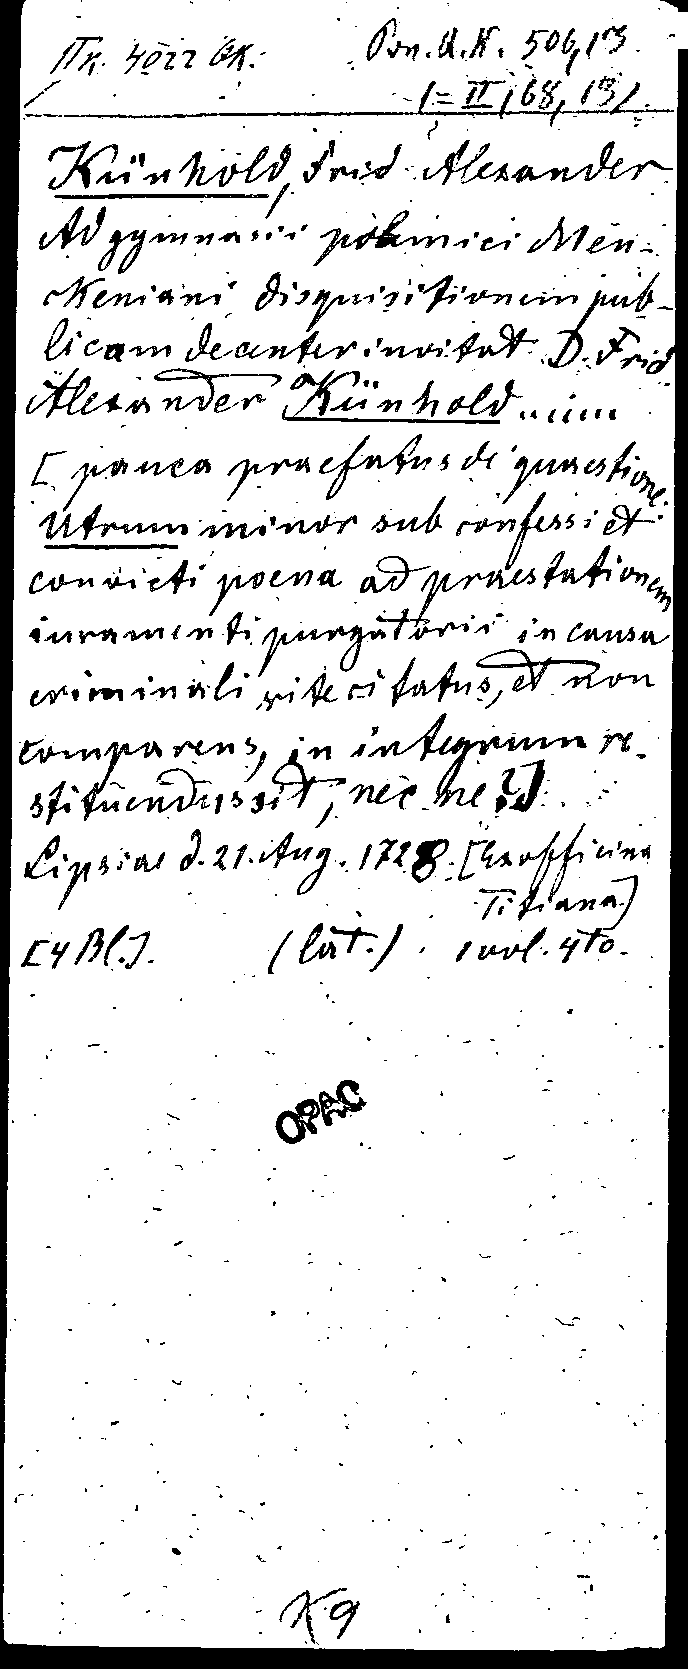 Pon. U. K. 506,13
(= II, 68, 13).
Künhold, Frid Alexander
Ad gymnasii polemici Men-
ckeniani disquisitionem pub-
licam decenter invitat D. Frid
Alexander Künhold
[pauca praefatus de quaestione:
Utrum minor sub confessi et
convicti poena ad praestationem
iuramenti purgatorii in causa
criminali rite citatus, et non
comparens, in integrum re-
stituendus sit, nec ne?]
Lipsiae d. 21. Aug. 1728. [Ex officina
Titiana]
[4 Bl.]. (lat.). 1 vol. 4to.
OPAC
K9